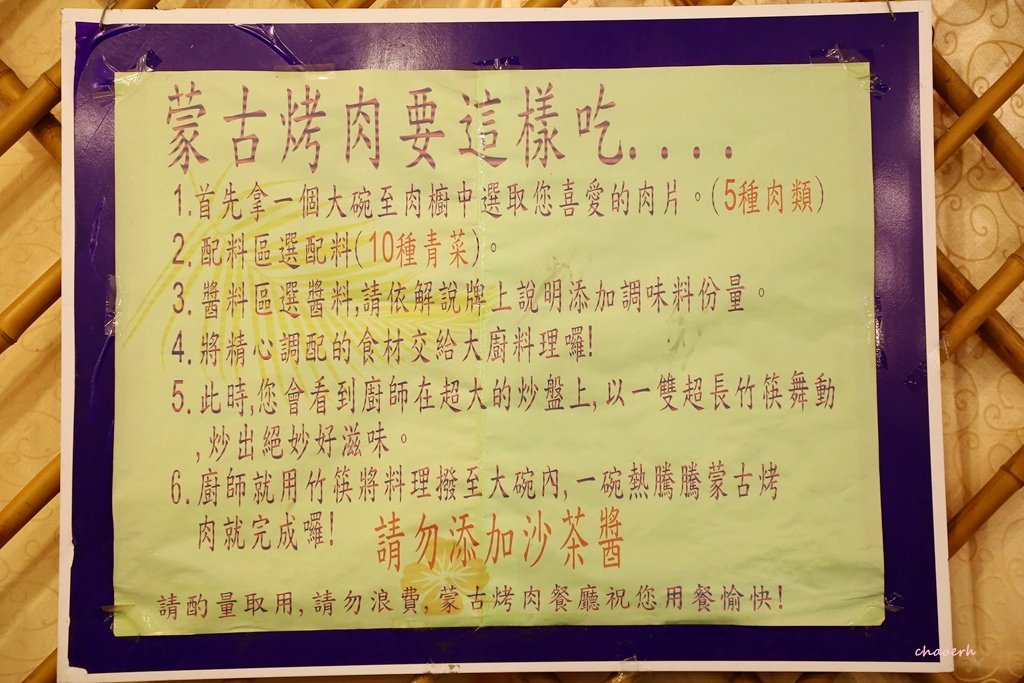 蒙古烤肉要這樣吃....
1.首先拿一個大碗至肉櫥中選取您喜愛的肉片。(5種肉類)
2.配料區選配料(10種青菜)。
3.醬料區選醬料,請依解說牌上說明添加調味料份量。
4.將精心調配的食材交給大廚料理囉!
5.此時,您會看到廚師在超大的炒盤上,以一雙超長竹筷舞動
,炒出絕妙好滋味。
6.廚師就用竹筷將料理撥至大碗內,一碗熱騰騰蒙古烤
肉就完成囉!
請勿添加沙茶醬
請酌量取用,請勿浪費,蒙古烤肉餐廳祝您用餐愉快!
chaoerh